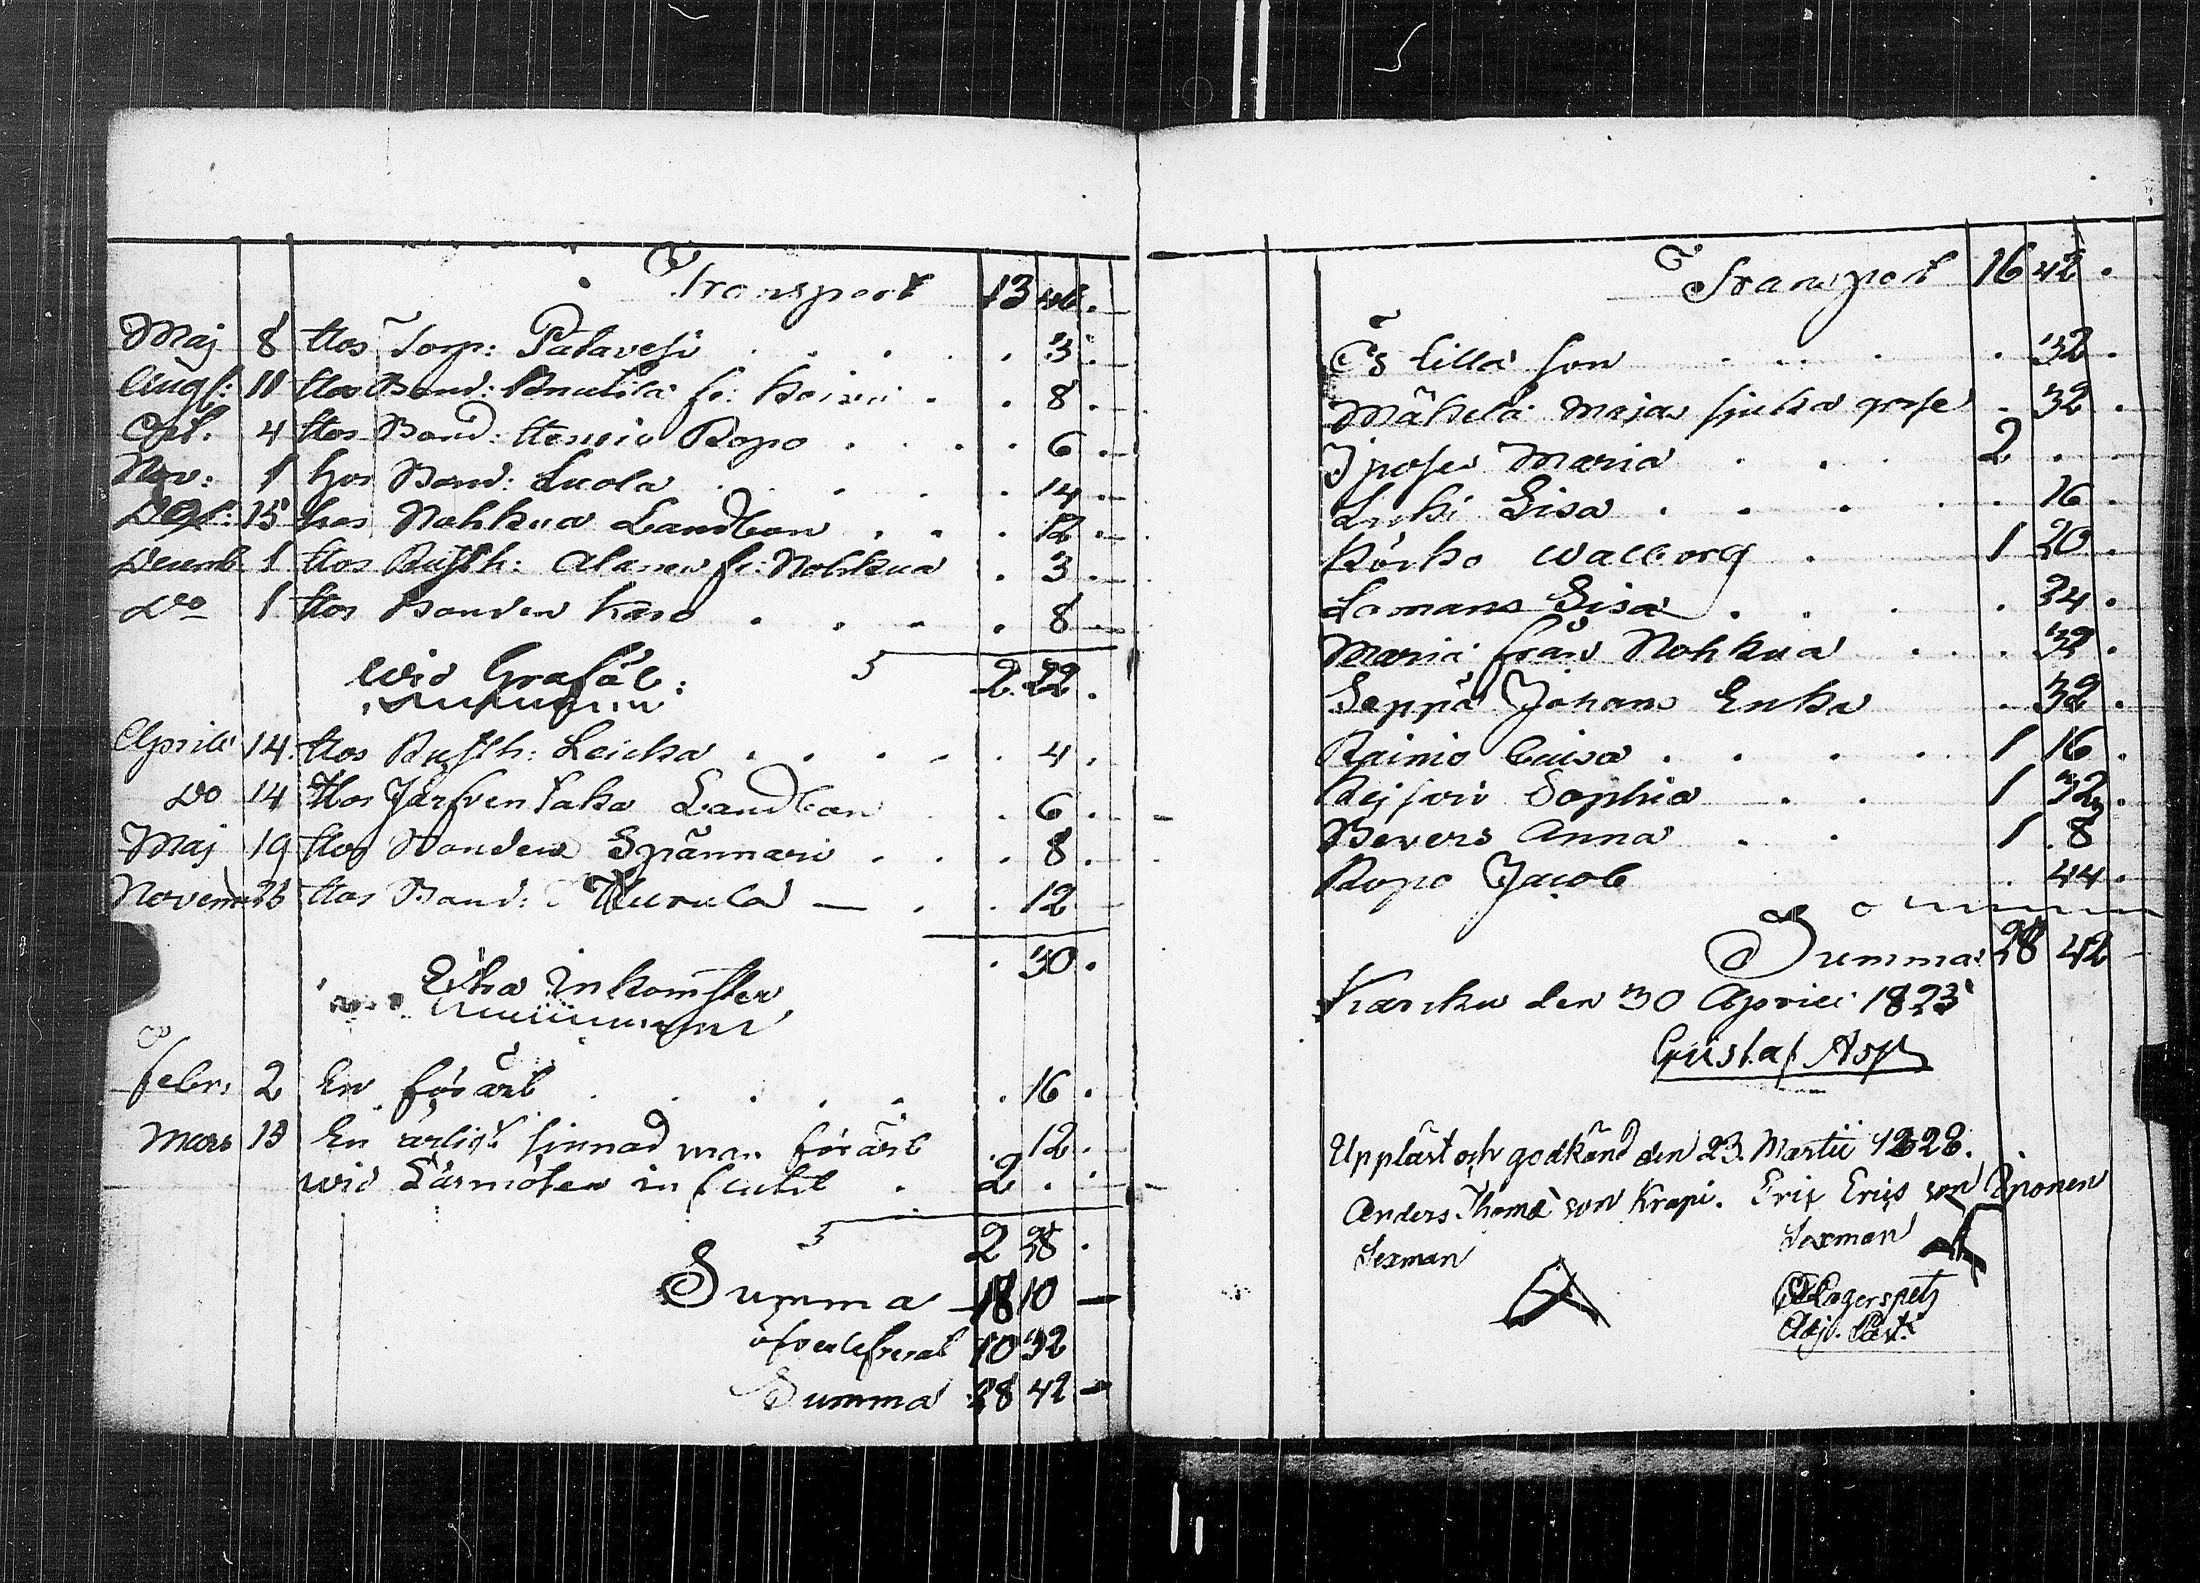 Transport 13 46.
Maj 8 Hos Torp: Patavesi . . . . . . 3.
Augs: 11 Hos Bond: Knutila fr: Koivu . . 8.
Oct. 4 Hos Bond: Heiwio Ropo . . . . 6.
Nov: 1 hos Bond: Luola . . . . . 14.
Do 15 hos Nohkua Landbon . . . 12.
Decemb 1 Hos Rusth: Alanen fr: Nohkua . 3.
Do 1 Hos Bonden Karo . . . . 8
Wid Grafäl: 2. 22.
Aprili 14. Hos Rusth: Leicka . . . . . 4.
Do 14 Hos Järfventaka Landbon . . 6.
Maj 19 Hos Bonden Spännari . . . 8.
Novem 26 Hos Bond: Hurula — . . 12
. 30.
Etra Inkomster
Febr: 2 En föräre . . . . . . 16.
Mars 13 En ärligt sinnad man förärt . 12.
wid Läsmöten in flutit . 2 . .
2 28.
Summa 18 10 —
öfverlefverat 10 32
Summa 28 42 —
Transport 16 42.
Es Lilla son . . . . . 32.
Mäkelä Majas sjuka gosse . 32.
Iposes Maria . . . 2 . .
Luhi Lisa . . . . . 16.
Körko Walborg . 1 20.
Lomans Lisa . . . . 24.
Maria från Nohkua . . . 32.
Seppä Johans Enka . 32.
Rainio Caisa . . . . . 1 16.
Keijari Sophia . . 1 32.
Bevers Anna . . 1. 8
Ropo Jacob . 44.
Summa 28 42
Karcku den 30 Aprili 1823
Gustaf Asp
Uppläst och godkänd den 23. Martii 1828.
Anders Thomä son Krapi. Erix Erics son Iponen
Sexman Sexman
Lagerspetz
Adj. Past: